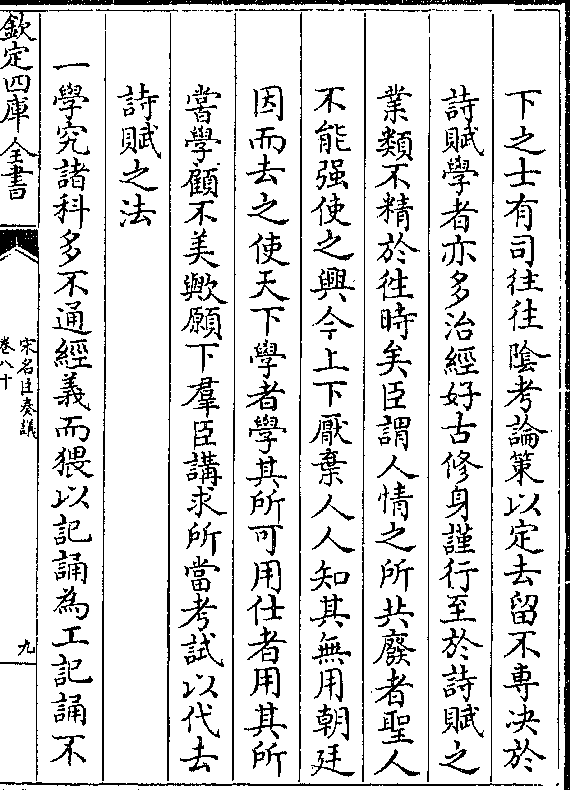 下之士有司往往陰考論策以定去留不專決於
詩賦學者亦多治經好古修身謹行至於詩賦之
業類不精於徃時矣臣謂人情之所共廢者聖人
不能强使之興今上下厭棄人人知其無用朝廷
因而去之使天下學者學其所可用仕者用其所
嘗學顧不美歟願下羣臣講求所當考試以代去
詩賦之法
一學究諸科多不通經義而猥以記誦為工記誦不
欽定四庫全書
宋名臣奏議
卷八十
九